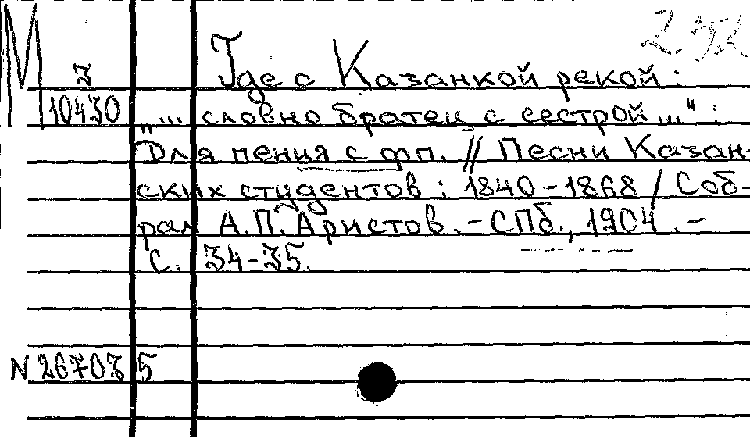 М
3
10430
Где с Казанкой рекой :
„... словно братец с сестрой ..." :
Для пения с фп. // Песни Казан-
ских студентов : 1840-1868 / Соб-
рал А.П. Аристов. - СПб., 1904. -
С. 34-35.
N 267035